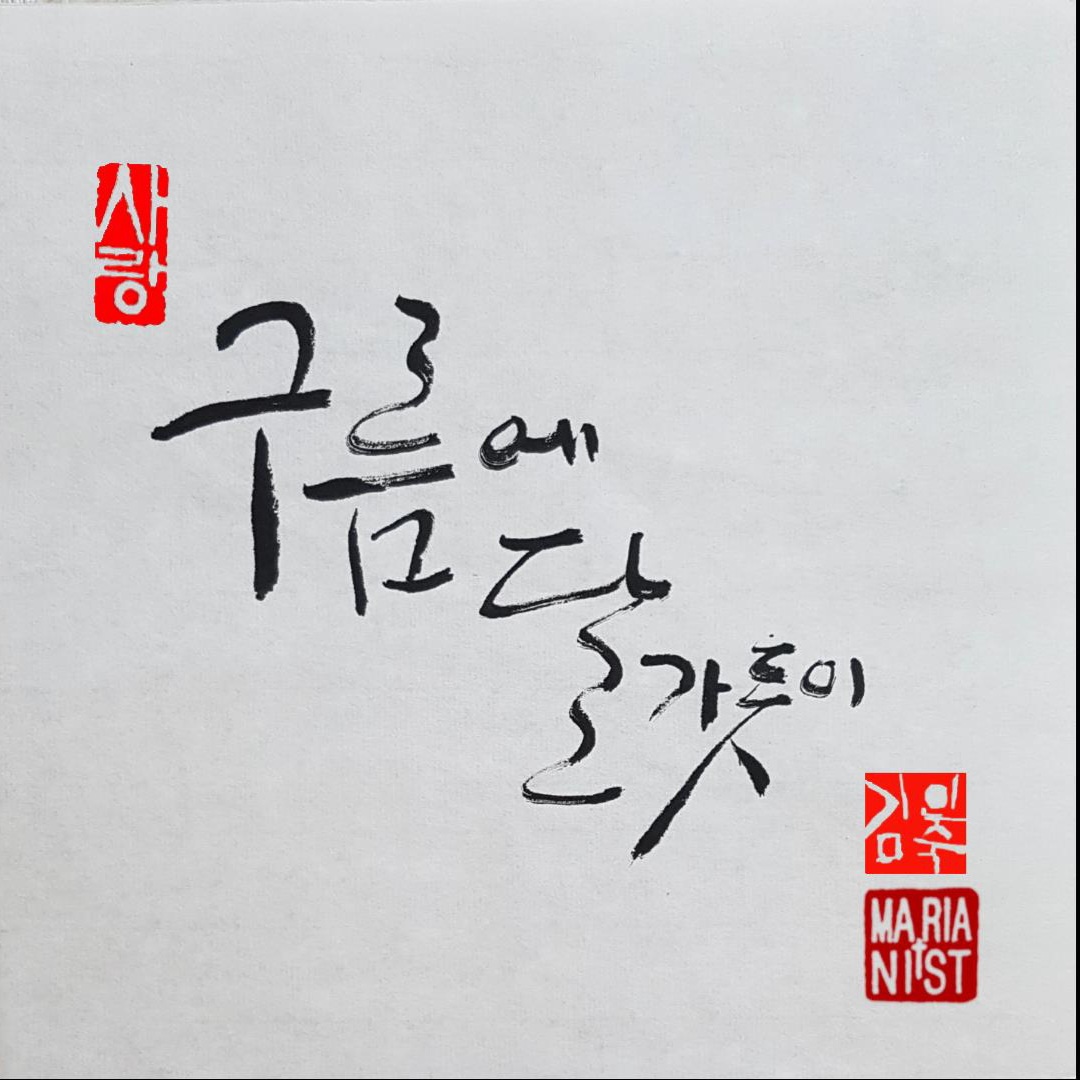 사랑
구름에
달 가듯이
김
MARIA
NIST